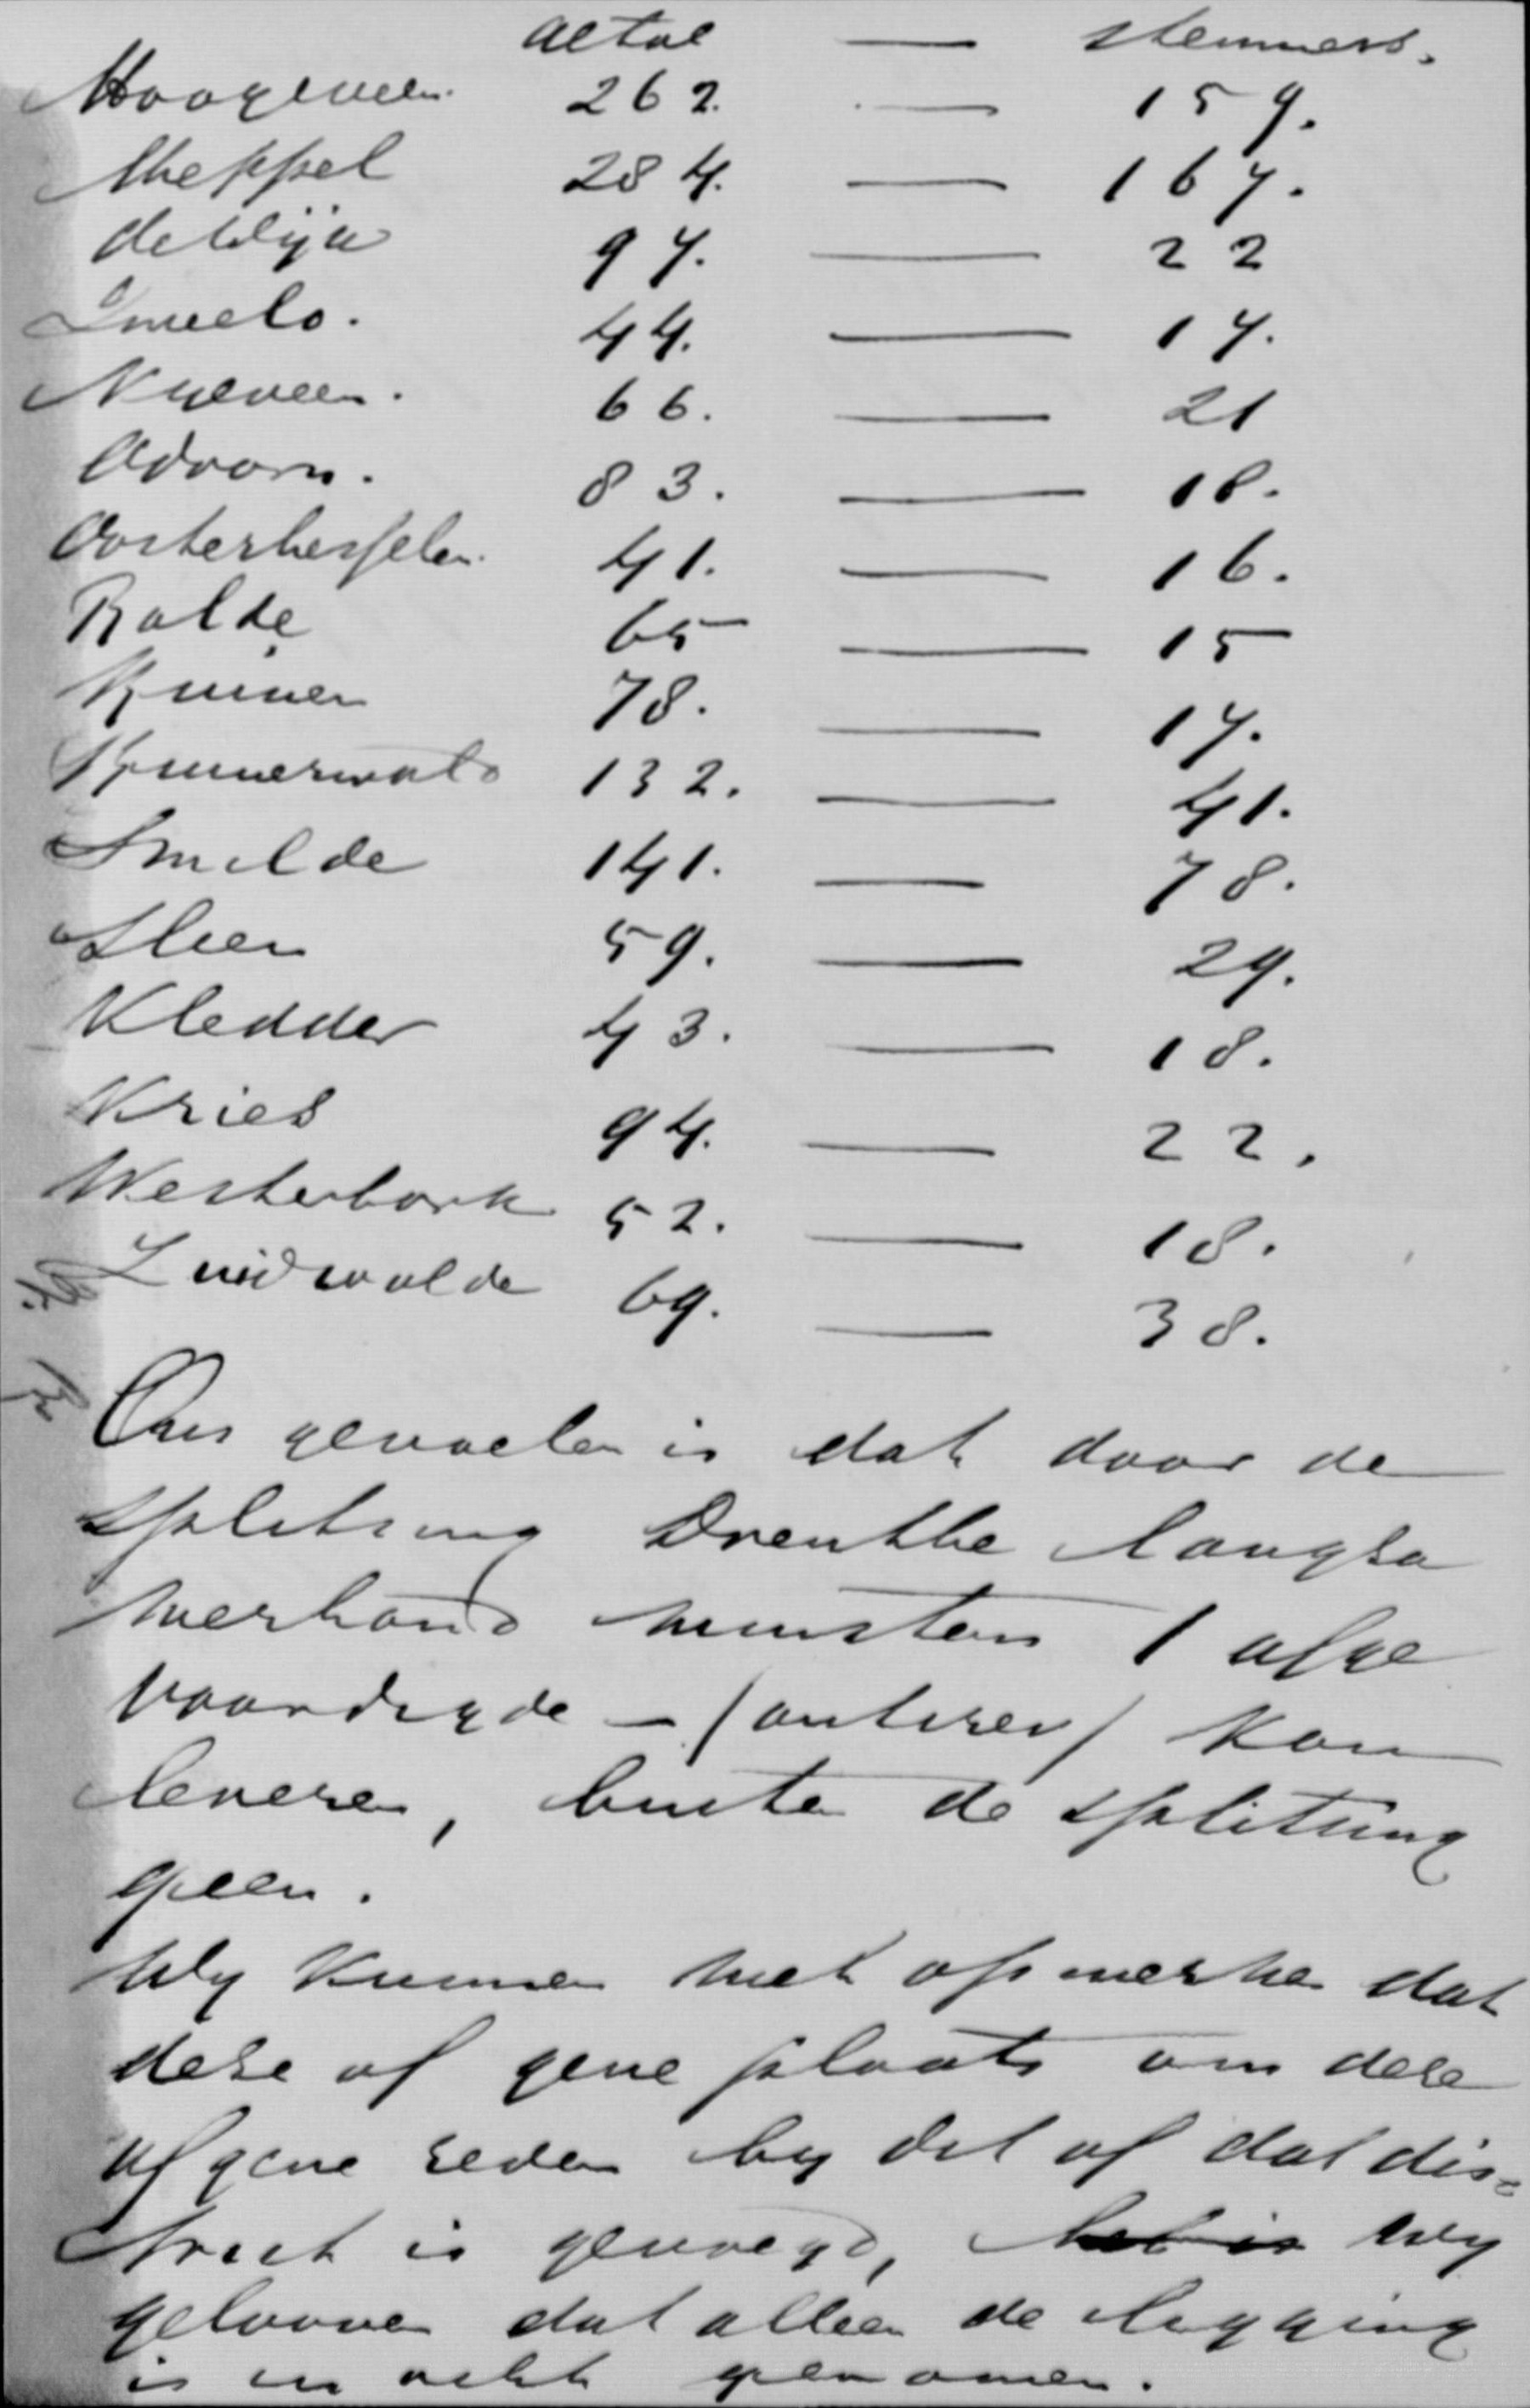 aetal — stemmers.
Hoogeveen. 262. — 159.
Meppel 284. — 167.
de Wijk 97. — 22
44. — 17.
Nyeveen. 66. — 21
Odoorn. 83. — 18.
Oosterhesselen. 41. — 16.
Rolde 65 — 15
Ruinen 78. — 17.
Ruinerwold 132. — 41.
Smilde 141. — 78.
Sleen 59. — 29.
Vledder 43. — 18.
Vries 94. — 22.
Westerbork 52. — 18.
Zuidwolde 69. — 38.
Ons gevoelen is dat door de
splitsing Drenthe langsa
merhand minstens 1 afge
vaardigde – (antirev) kan
leveren, buiten de splitsing
geen.
Wy kunnen niet opmerken dat
deze of gene plaats om deze
of gene reden by dit of dat dis=
trict is gevoegd, het is wy
gelooven dat alleen de ligging
is in acht genomen.